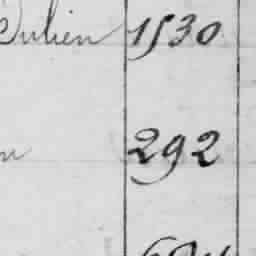 Julien 1530
292